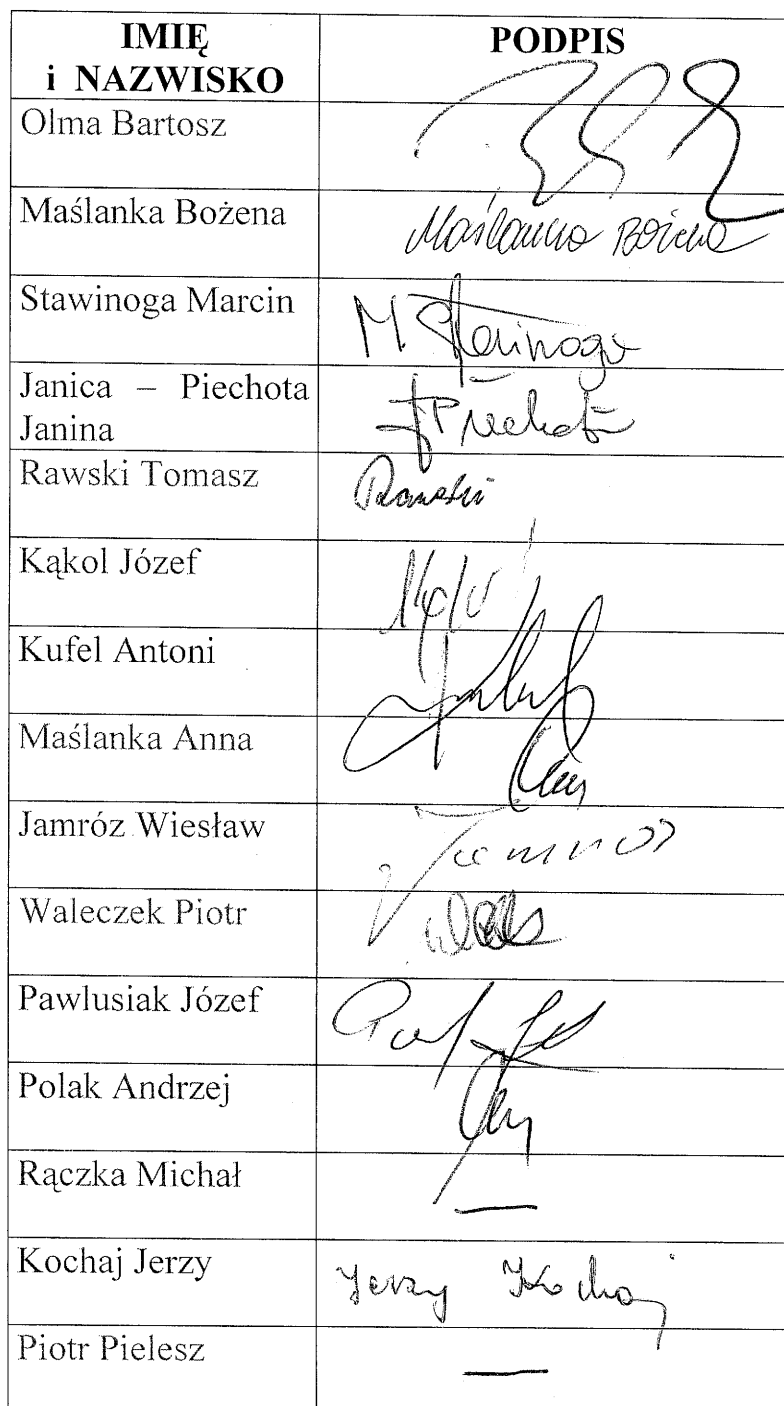 IMIĘ
i NAZWISKO
PODPIS
Olma Bartosz
Maślanka Bożena
Maślanka Bożena
Stawinoga Marcin
M. Stawinoga
Janica – Piechota
Janina
JPiechota
Rawski Tomasz
Rawski
Kąkol Józef
Kufel Antoni
Maślanka Anna
Jamróz Wiesław
Jamróz
Waleczek Piotr
Pawlusiak Józef
Polak Andrzej
Rączka Michał
—
Kochaj Jerzy
Jerzy Kochaj
Piotr Pielesz
—